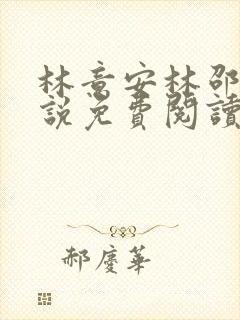 林意安林邵
說免費閱讀
郝慶華